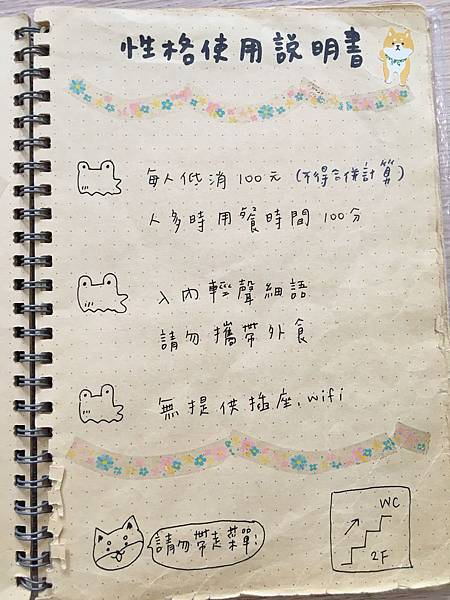 性格使用說明書
每人低消100元(不得合併計算)
人多時用餐時間100分
入內輕聲細語
請勿攜帶外食
無提供插座、wifi
請勿帶走菜單!
WC
2F